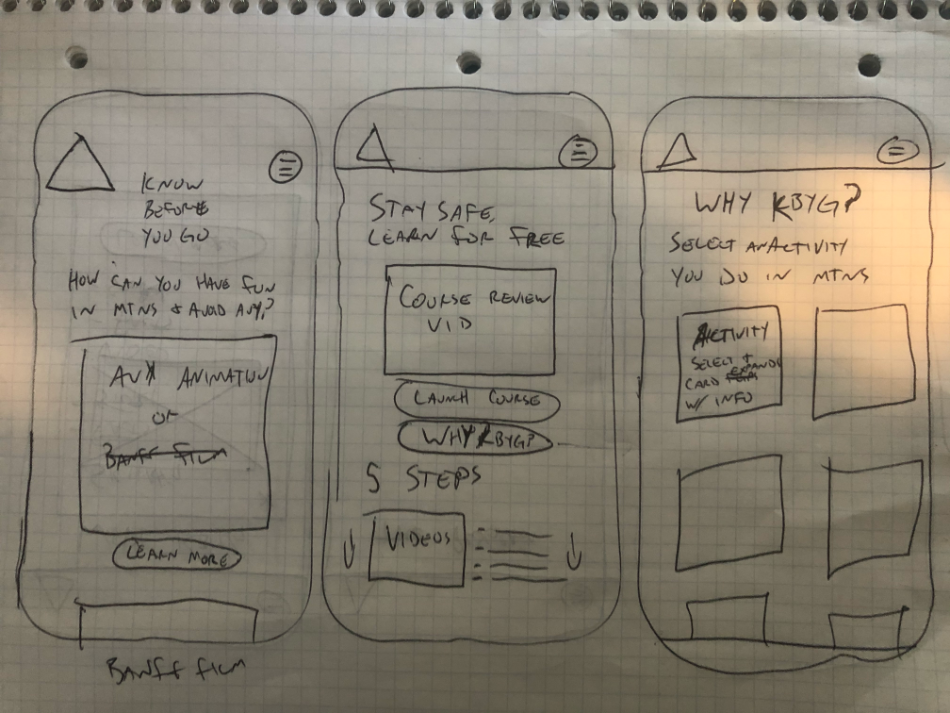 KNOW
BEFORE
YOU GO
HOW CAN YOU HAVE FUN
IN MTNS & AVOID AVY?
AVY ANIMATION
OR
BANFF FILM
LEARN MORE
BANFF FILM
STAY SAFE,
LEARN FOR FREE
COURSE REVIEW
VID
LAUNCH COURSE
WHY KBYG?
5 STEPS
VIDEOS
WHY KBYG?
SELECT AN ACTIVITY
YOU DO IN MTNS
ACTIVITY
SELECT +
EXPANDS
CARD
W/ INFO